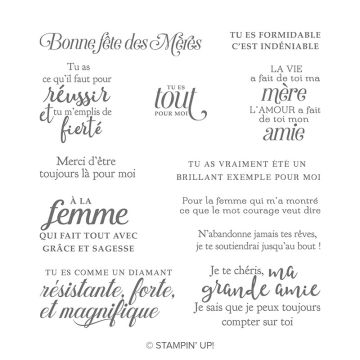 Bonne fête des Mères
TU ES FORMIDABLE
C'EST INDÉNIABLE
Tu as
ce qu'il faut pour
réussir
et tu m'emplis de
fierté
TU ES
tout
POUR MOI
LA VIE
a fait de toi ma
mère
L'AMOUR a fait
de toi mon
amie
Merci d'être
toujours là pour moi
TU AS VRAIMENT ÉTÉ UN
BRILLANT EXEMPLE POUR MOI
À LA
femme
QUI FAIT TOUT AVEC
GRÂCE ET SAGESSE
Pour la femme qui m'a montré
ce que le mot courage veut dire
N'abandonne jamais tes rêves,
je te soutiendrai jusqu'au bout !
TU ES COMME UN DIAMANT
résistante, forte,
et magnifique
Je te chéris, ma
grande amie
Je sais que je peux toujours
compter sur toi
© STAMPIN' UP!